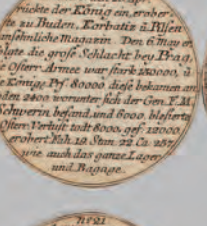 rückte der König ein, erober
te zu Buden, Korbatiz ü. Pilsen
ansehnliche Magazin. Den 6 May er
folgte die große Schlacht bey Prag,
Österr. Armee war stark 150000, ü
Könige Prß. 80000 diese bekamen an
den 2400 worunter sich der Gen. F. M.
Schwerin befand, und 6000 bleßirte
Österr. Verlust todt 8000, gef. 12000.
erobert Fah. 19. Stan. 22. Ca. 257
wie auch das ganze Lager
und Bagage.
N° 21